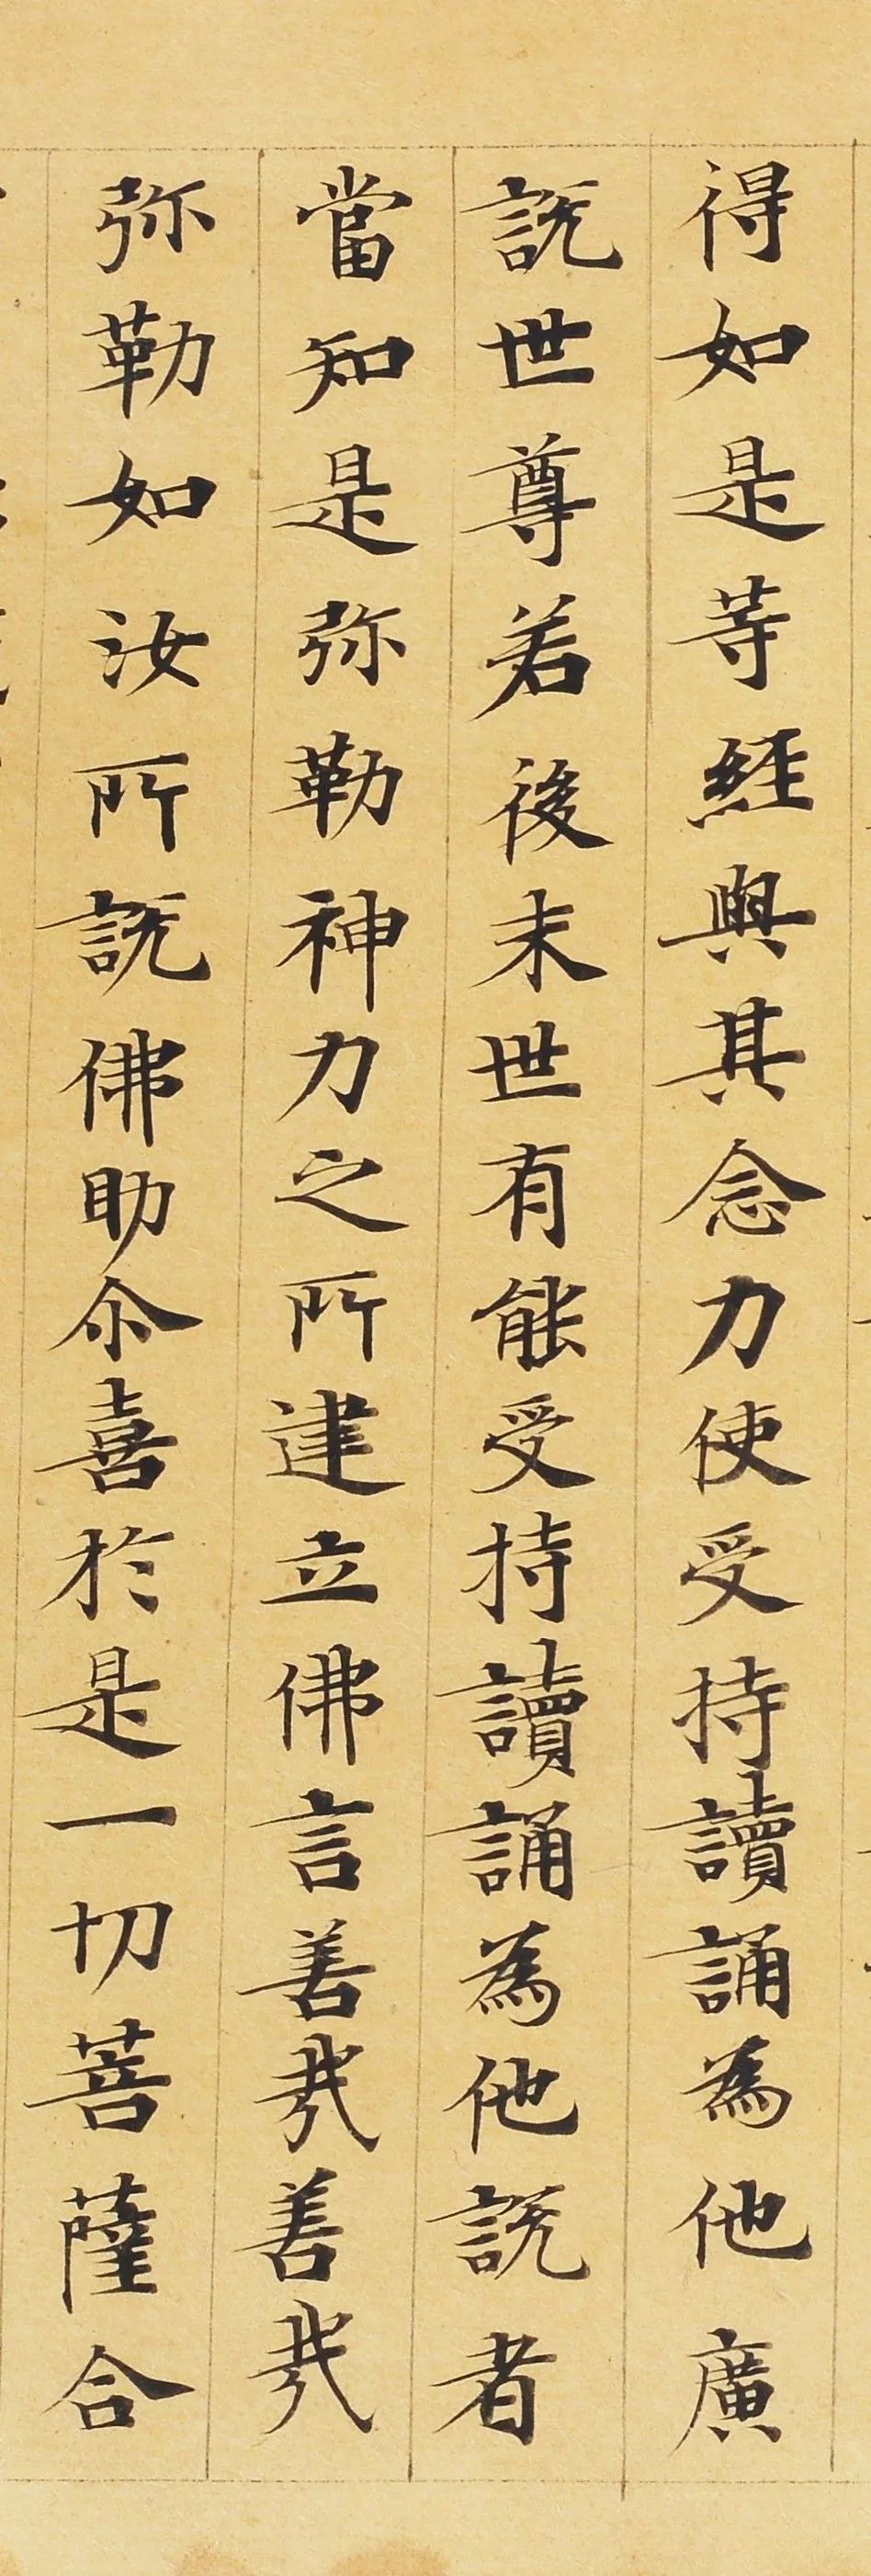 得如是等經與其念力使受持讀誦為他廣
說世尊若後末世有能受持讀誦為他說者
當知是弥勒神力之所建立佛言善哉善哉
弥勒如汝所說佛助尒喜於是一切菩薩合